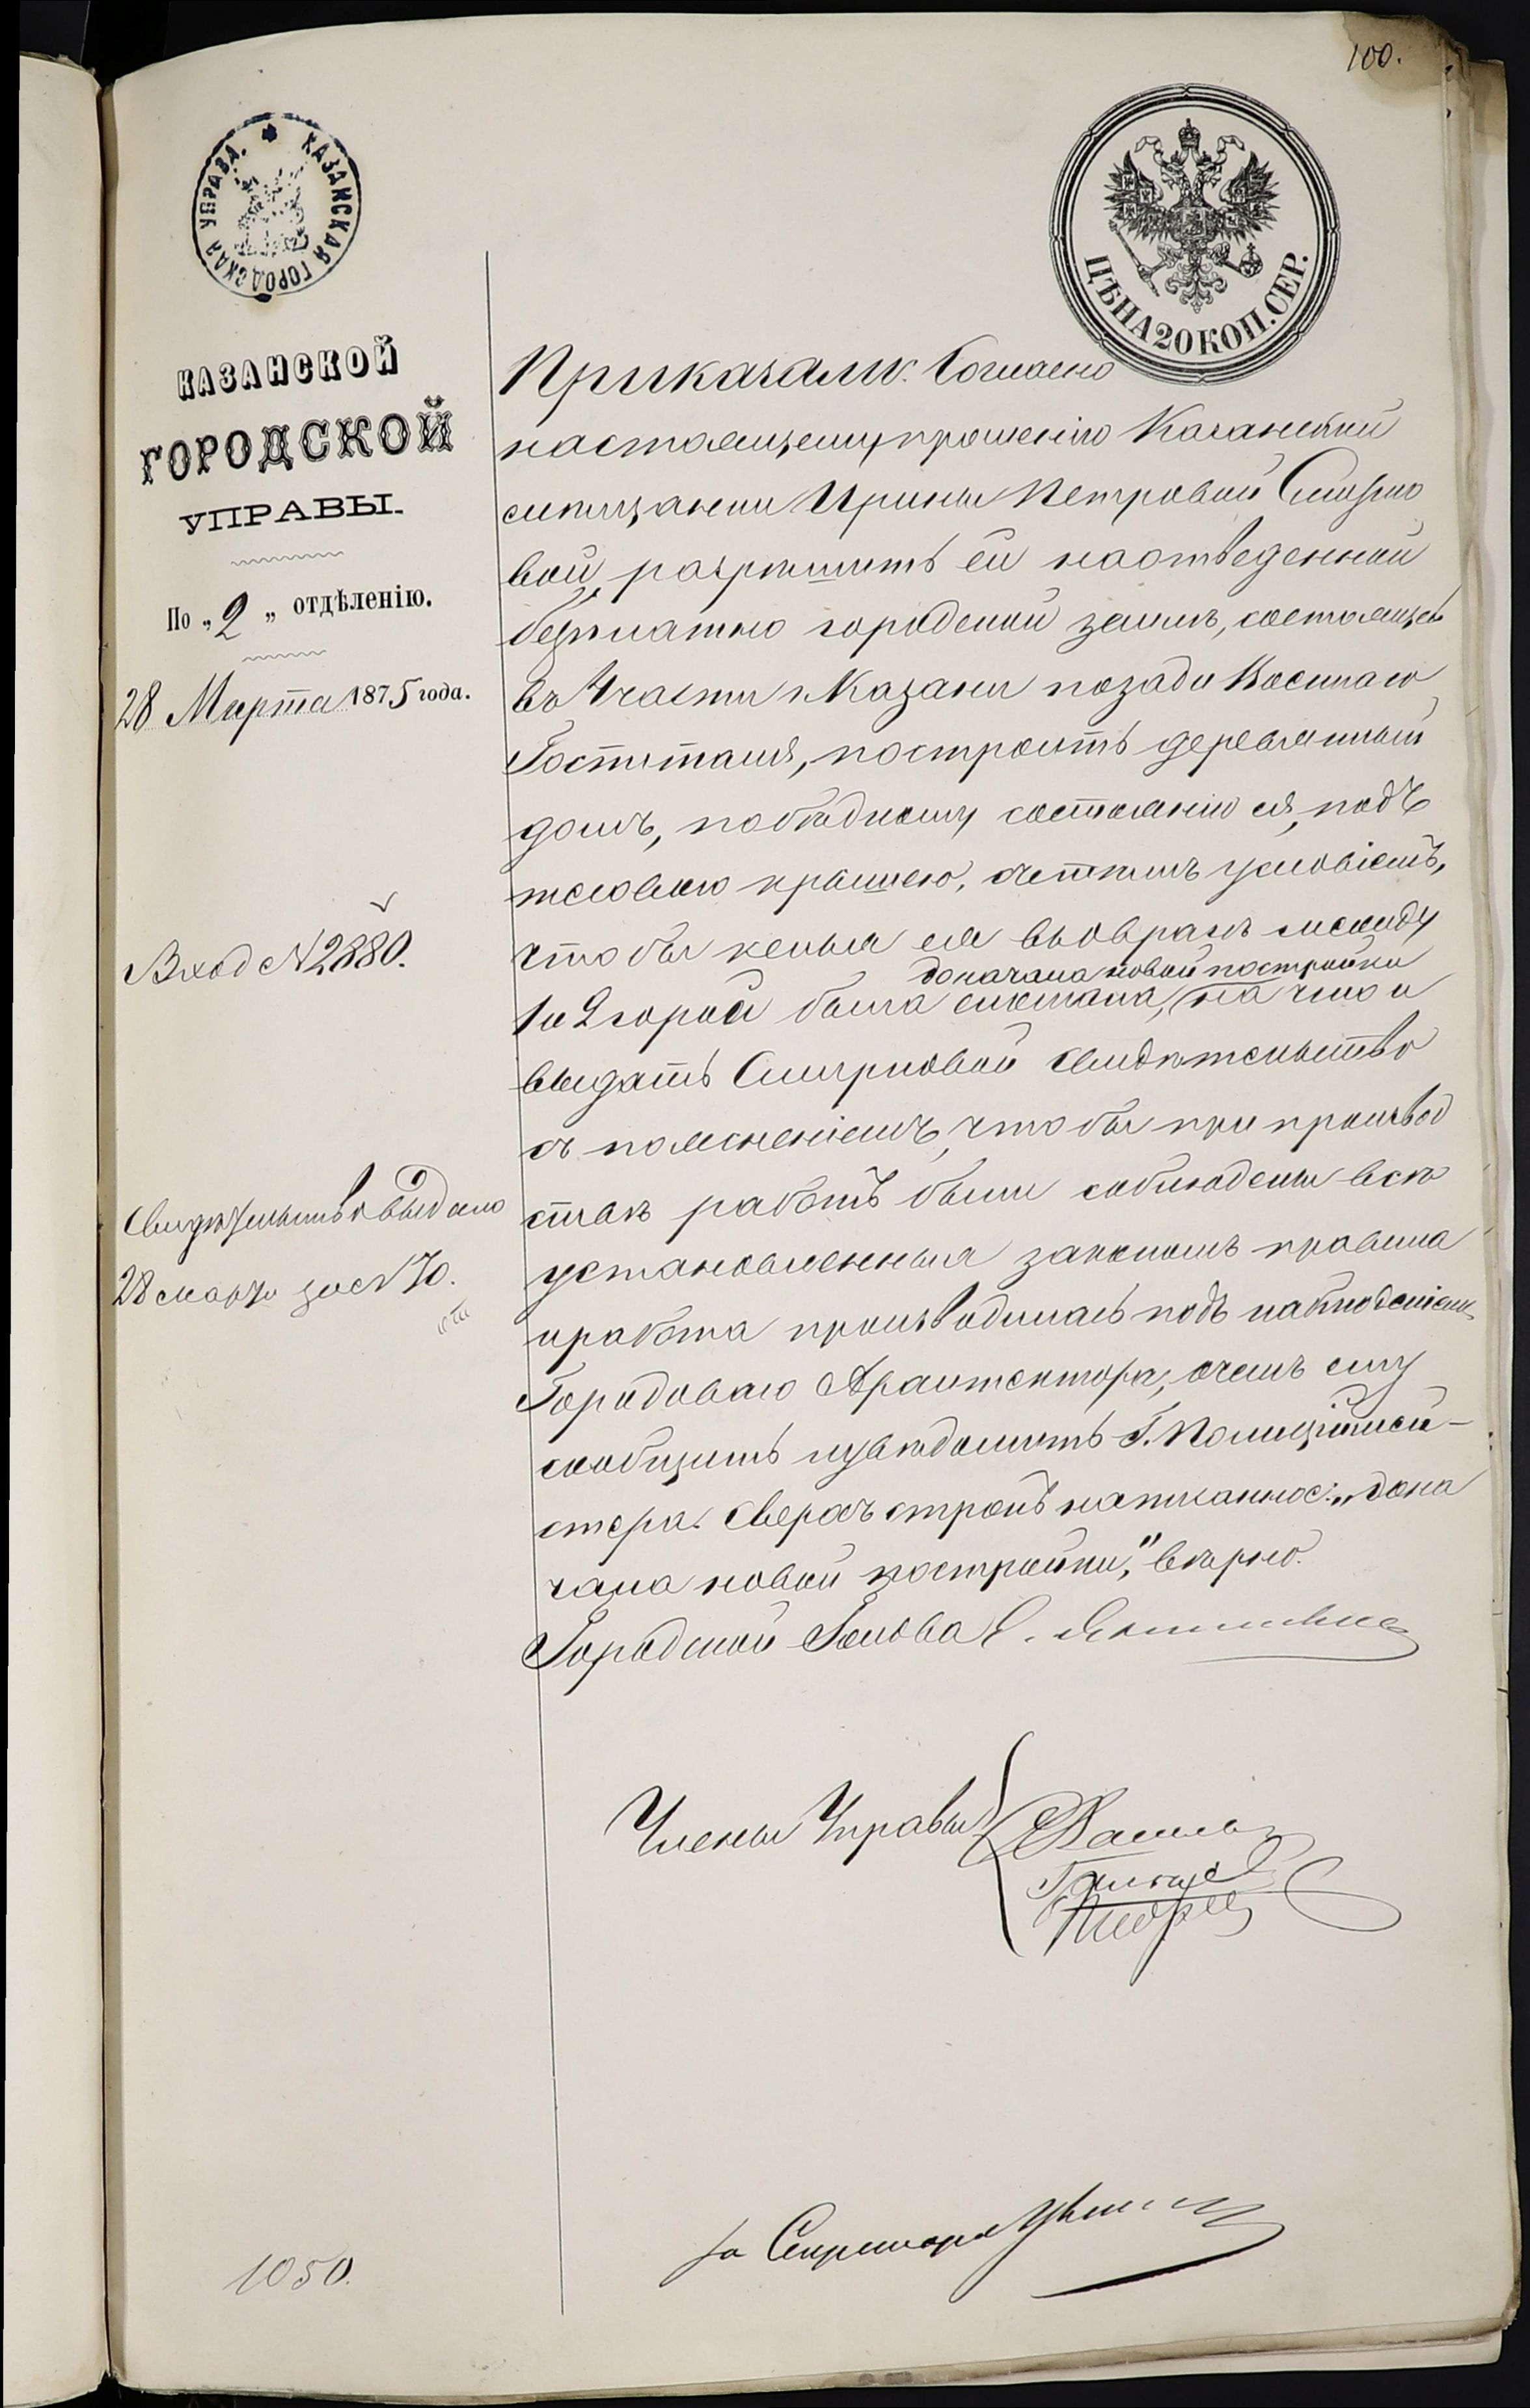 100.
КАЗАНСКАЯ ГОРОДСКАЯ УПРАВА.
ЦѢНА 20 КОП. СЕР.
КАЗАНСКОЙ
ГОРОДСКОЙ
УПРАВЫ.
По „2„ отдѣленію.
28 Марта 1875 года.
Вход № 2880.
Свидѣтельство выдано
28 марта за № 70.
1050.
Приказали: Согласно
настоящему прошенію Казанской
мѣщанки Ирины Петровой Смирно
вой, разрѣшить ей на отведенной
безплатно городской землѣ, состоящей
въ 4 части г. Казани позади Военнаго
Госпиталя, построить деревянный
домъ, по бѣдному состоянію ея, подъ
тесовою крышею, съ тѣмъ условіемъ,
что бы келья ея въ оврагѣ между
до начала новой постройки
1 и 2 горой была сломана, на что и
выдать Смирновой свидѣтельство
съ поясненіемъ, что бы при производ
ствѣ работъ были соблюдены всѣ
установленныя закономъ правила
и работа производилась подъ наблюденіемъ
Городоваго Архитектора, о чемъ ему
сообщить и увѣдомить Г. Полиціймей-
стера. Сверхъ строкъ написанное: „до на
чала новой постройки,“ вѣрно.
Городской Голова Е.
Члены Управы
за Секретаря